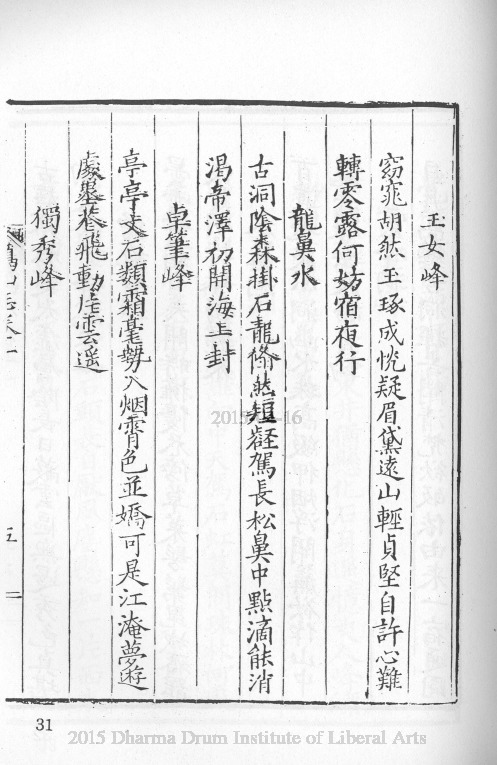 玉女峰
窈窕胡然玉琢成恍疑眉黛遠山輕貞堅自許心難
轉零露何妨宿夜行
龍鼻水
古洞陰森掛石龍倏然短壑駕長松鼻中點滴能消
渴帝澤初開海上封
卓筆峰
亭亭文石類霜毫勢入烟霄色並嬌可是江淹夢遊
處墨花飛動片雲遥
獨秀峰
山志
五
31
2015 Dharma Drum Institute of Liberal Arts